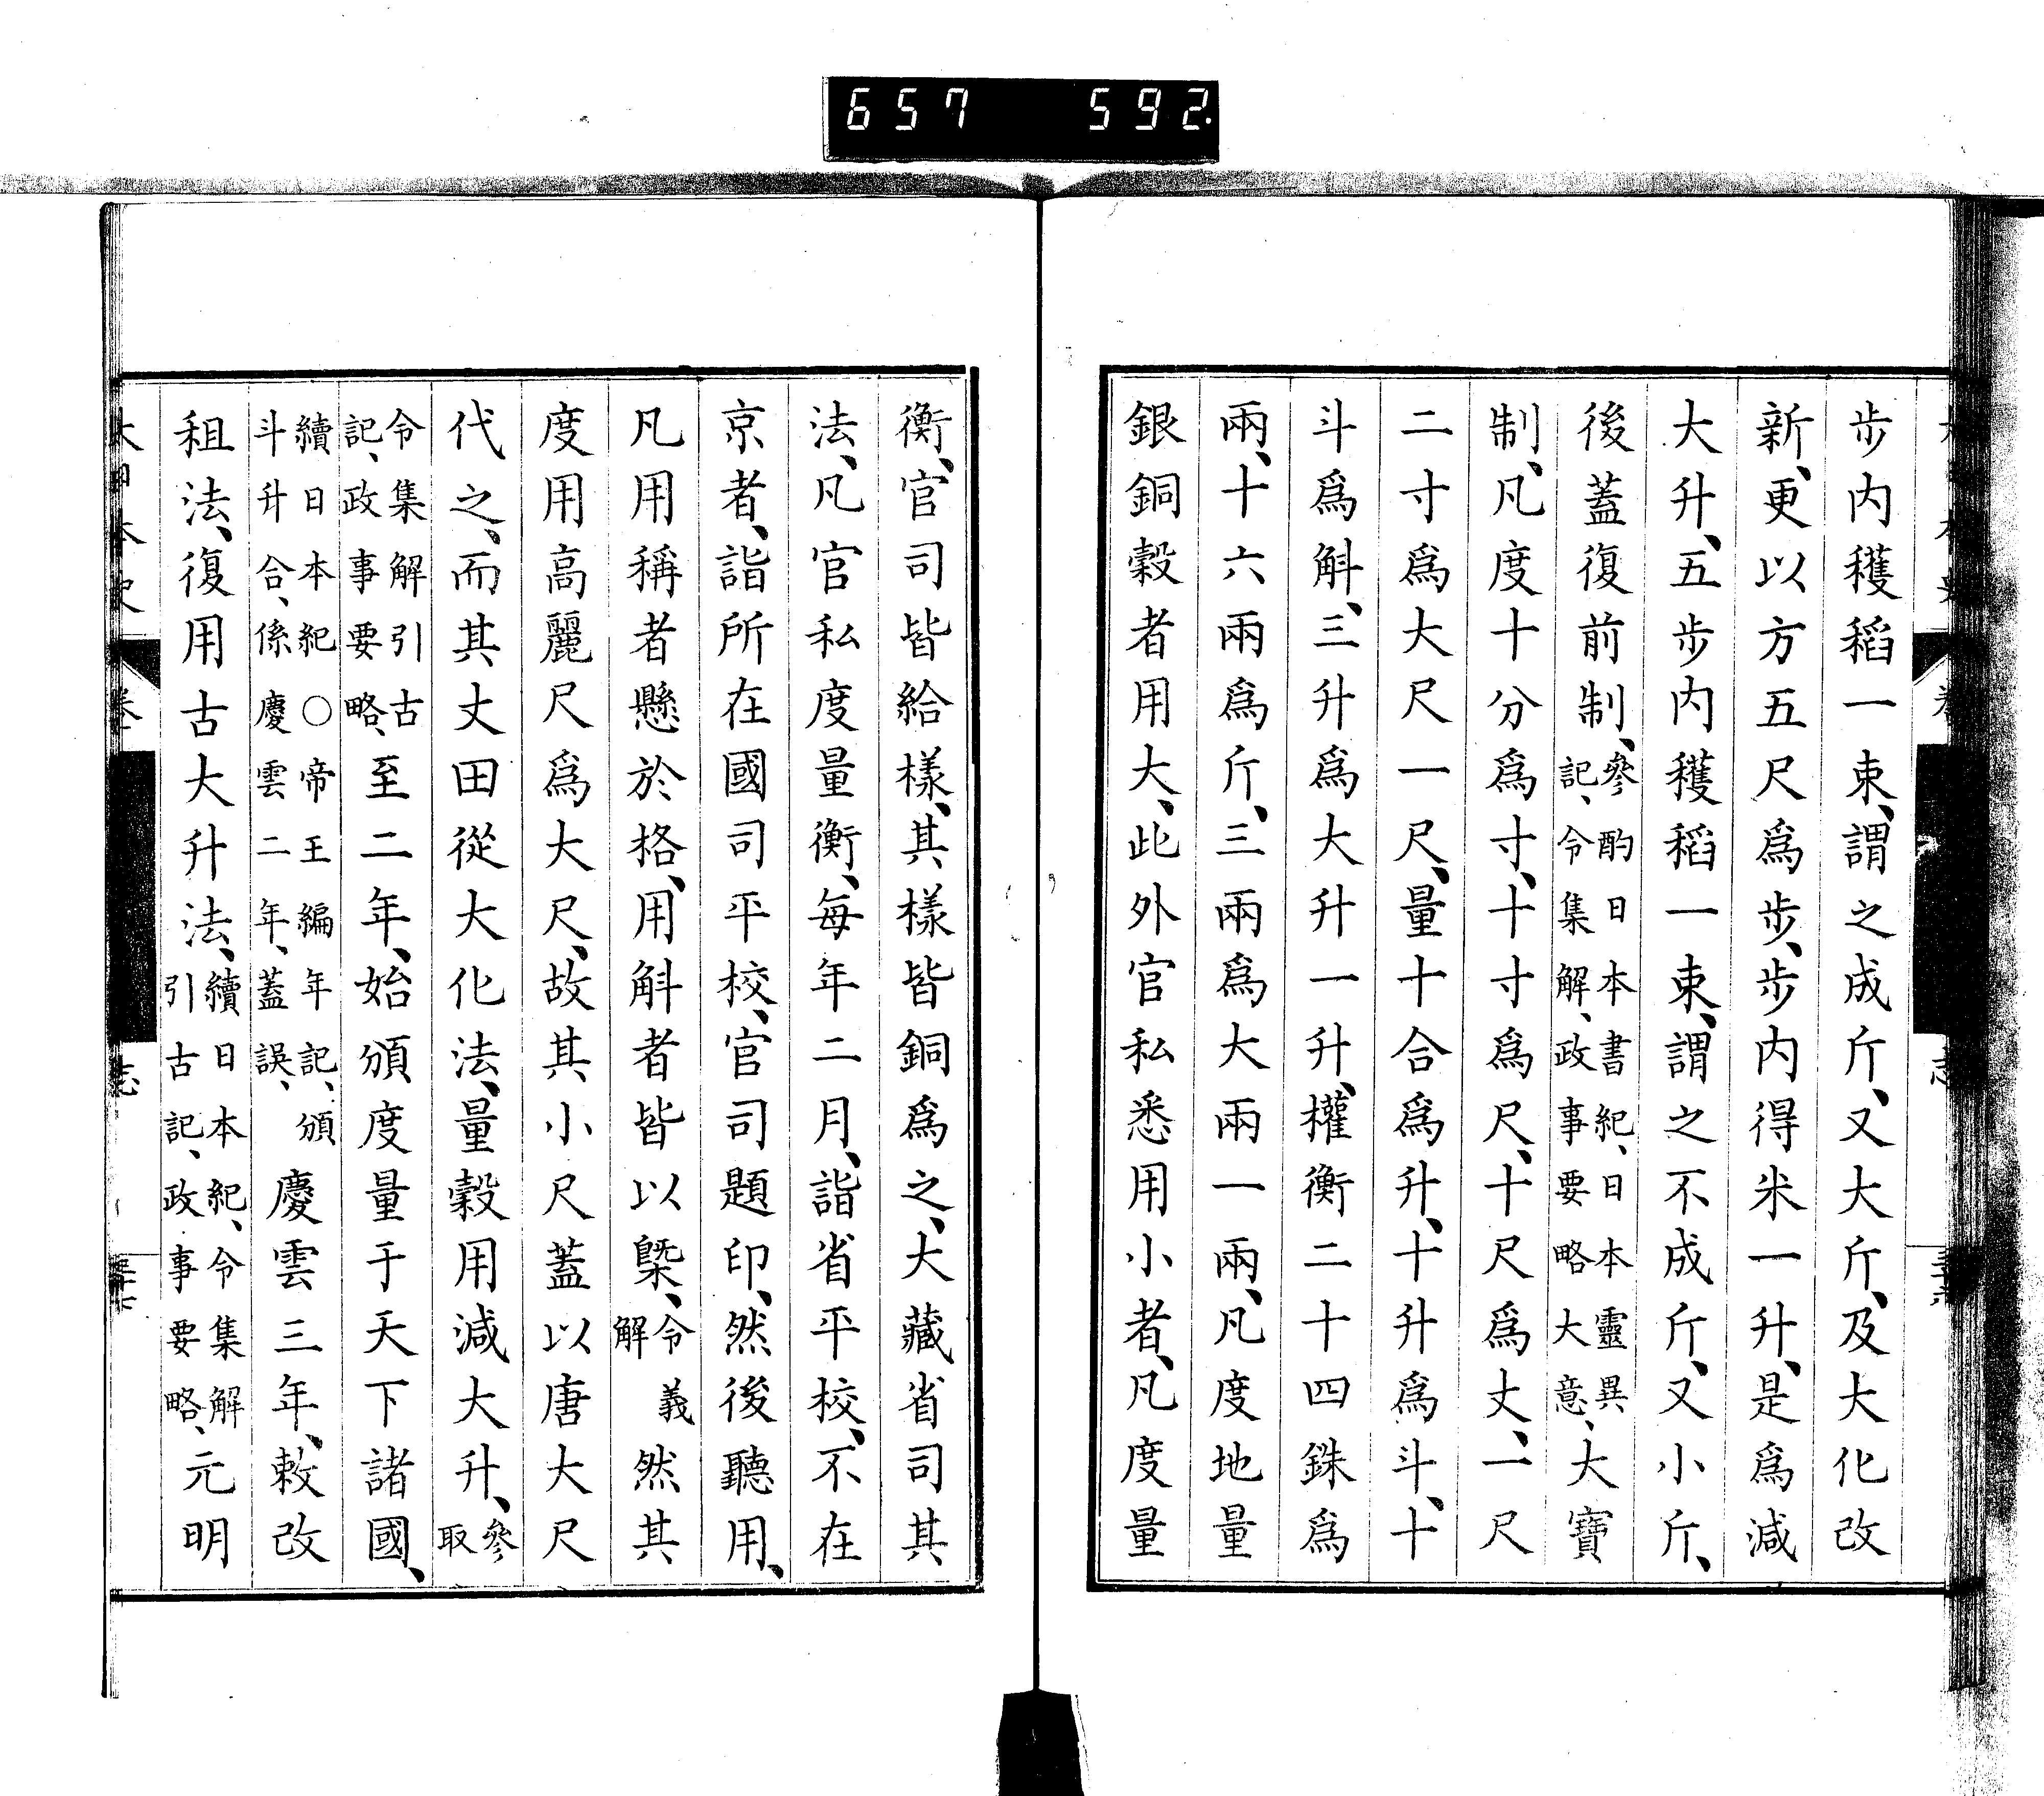 657 592
步内穫稻一束、謂之成斤、又大斤、及大化改
新、更以方五尺爲步、步内得米一升、是爲減
大升、五步内穫稻一束、謂之不成斤、又小斤、
後蓋復前制、參酌日本書紀、日本靈異記、令集解、政事要略大意、大寶
制、凡度十分爲寸、十寸爲尺、十尺爲丈、一尺
二寸爲大尺一尺、量十合爲升、十升爲斗、十
斗爲斛、三升爲大升一升、權衡二十四銖爲
兩、十六兩爲斤、三兩爲大兩一兩、凡度地量
銀銅穀者用大、此外官私悉用小者、凡度量
衡、官司皆給樣、其樣皆銅爲之、大藏省司其
法、凡官私度量衡、每年二月、詣省平校、不在
京者、詣所在國司平校、官司題印、然後聽用、
凡用稱者懸於格、用斛者皆以槩、令義解然其
度用高麗尺爲大尺、故其小尺蓋以唐大尺
代之、而其丈田從大化法、量穀用減大升、參取
令集解引古記、政事要略、至二年、始頒度量于天下諸國、
續日本紀○帝王編年記、頒斗升合、係慶雲二年、蓋誤、慶雲三年、敕改
租法、復用古大升法、續日本紀、令集解引古記、政事要略、元明
大日本史
卷
志